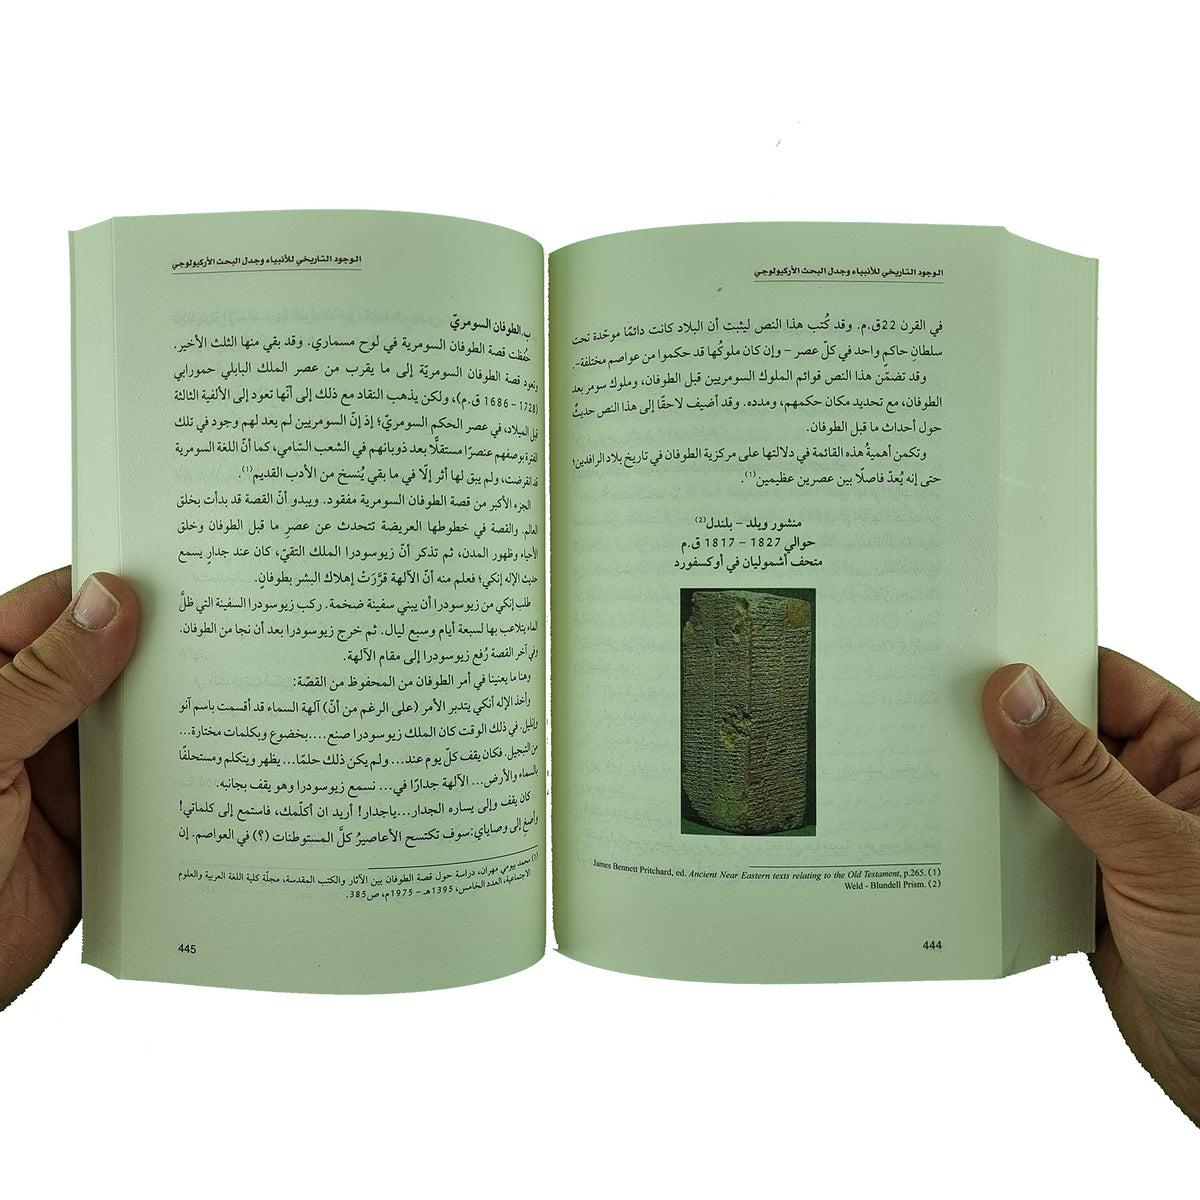 الوجود التاريخي للأنبياء وجدل البحث الأركيولوجي
في القرن 22ق.م. وقد كُتب هذا النص ليثبت أن البلاد كانت دائمًا موحّدة تحت
سلطانِ حاكمٍ واحد في كلّ عصر – وإن كان ملوكُها قد حكموا من عواصم مختلفة–.
وقد تضمّن هذا النص قوائم الملوك السومريين قبل الطوفان، وملوك سومر بعد
الطوفان، مع تحديد مكان حكمهم، ومدده. وقد أضيف لاحقًا إلى هذا النص حديثٌ
حول أحداث ما قبل الطوفان.
وتكمن أهميةُ هذه القائمة في دلالتها على مركزية الطوفان في تاريخ بلاد الرافدين؛
حتى إنه يُعدّ فاصلًا بين عصرين عظيمين(1).
منشور ويلد – بلندل(2)
حوالي 1827 – 1817 ق.م
متحف أشموليان في أوكسفورد
(1) James Bennett Pritchard, ed. Ancient Near Eastern texts relating to the Old Testament, p.265.
(2) Weld - Blundell Prism.
444
الوجود التاريخي للأنبياء وجدل البحث الأركيولوجي
ب. الطوفان السومريّ
حُفِظت قصة الطوفان السومرية في لوح مسماري. وقد بقي منها الثلث الأخير.
وتعود قصة الطوفان السومريّة إلى ما يقرب من عصر الملك البابلي حمورابي
(1728 – 1686 ق.م)، ولكن يذهب النقاد مع ذلك إلى أنّها تعود إلى الألفية الثالثة
قبل الميلاد، في عصر الحكم السومريّ؛ إذ إنّ السومريين لم يعد لهم وجود في تلك
الفترة بوصفهم عنصرًا مستقلًّا بعد ذوبانهم في الشعب السّامي، كما أنّ اللغة السومرية
قد انقرضت، ولم يبق لها أثر إلّا في ما بقي يُنسخ من الأدب القديم(1).
الجزء الأكبر من قصة الطوفان السومرية مفقود. ويبدو أنّ القصة قد بدأت بخلق
العالم. والقصة في خطوطها العريضة تتحدث عن عصرِ ما قبل الطوفان وخلق
الأحياء وظهور المدن، ثم تذكر أنّ زيوسودرا الملك التقيّ، كان عند جدارٍ يسمع
حديث الإله إنكي؛ فعلم منه أنّ الآلهة قرَّرَتْ إهلاك البشر بطوفانٍ.
طلب إنكي من زيوسودرا أن يبني سفينة ضخمة. ركب زيوسودرا السفينة التي ظلَّ
الماء يتلاعب بها لسبعة أيام وسبع ليال. ثم خرج زيوسودرا بعد أن نجا من الطوفان.
وفي آخر القصة رُفع زيوسودرا إلى مقام الآلهة.
وهنا ما يعنينا في أمر الطوفان من المحفوظ من القصّة:
وأخذ الإله أنكي يتدبر الأمر (على الرغم من أنّ) آلهة السماء قد أقسمت باسم آنو
وإنليل. في ذلك الوقت كان الملك زيوسودرا صنع ....بخضوع وبكلمات مختارة...
من التبجيل. فكان يقف كلّ يوم عند... ولم يكن ذلك حلمًا... يظهر ويتكلم ومستحلفًا
بالسماء والأرض... الآلهة جدارًا في... نسمع زيوسودرا وهو يقف بجانبه.
كان يقف وإلى يساره الجدار...ياجدار! أريد ان أكلّمك، فاستمع إلى كلماتي!
وأصغِ إلى وصاياي:سوف تكتسح الأعاصيرُ كلَّ المستوطنات (؟) في العواصم. إن
(1) محمد بيومي مهران، دراسة حول قصة الطوفان بين الآثار والكتب المقدسة، مجلّة كلية اللغة العربية والعلوم
الاجتماعية، العدد الخامس، 1395هـ – 1975م، ص385.
445